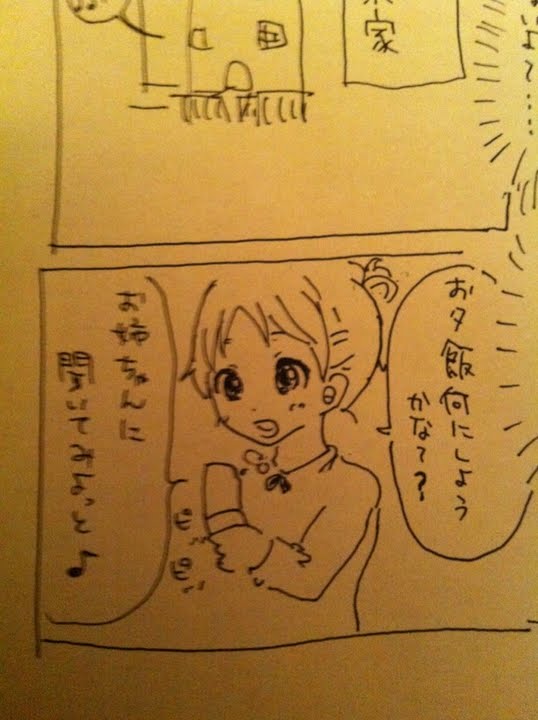 いよて……
家
お夕飯何にしよう
かなて?
お姉ちゃんに
聞いてみよっと♪
ピ
ピ